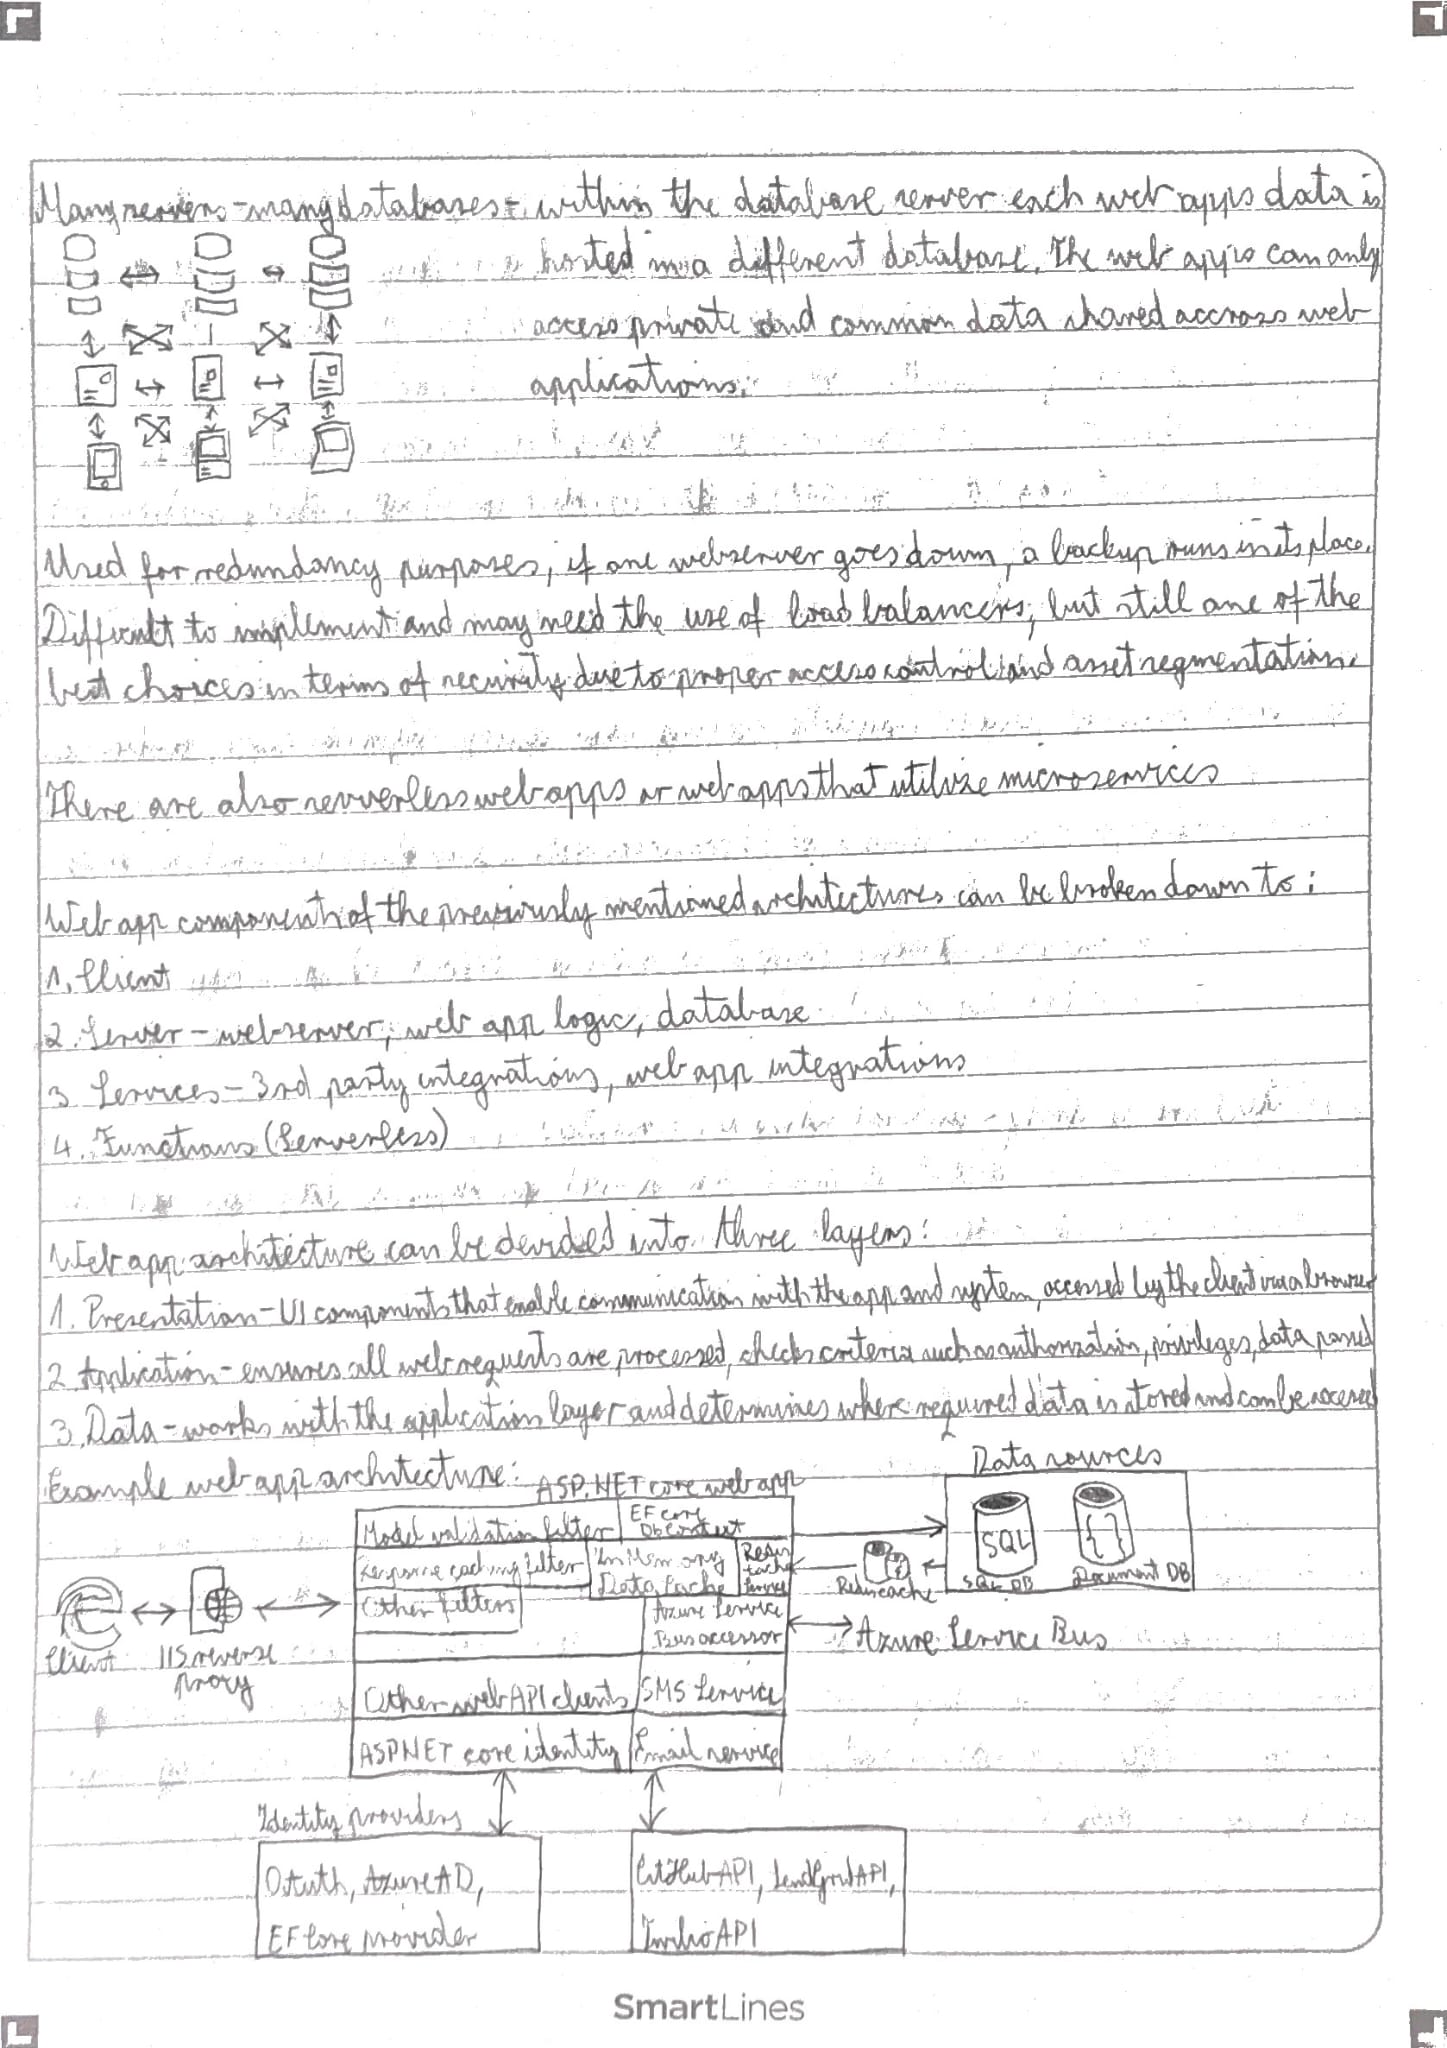 Many servers - many databases - within the database server each web apps data is
hosted in a different database. The web apps can only
access private and common data shared accross web
applications.
Used for redundancy purposes, if one webserver goes down, a backup runs in its place.
Difficult to implement and may need the use of load balancers, but still one of the
best choices in terms of security due to proper access control and asset segmentation.
There are also serverless web apps or web apps that utilize microservices
Web app component of the previously mentioned architectures can be broken down to:
1. Client
2. Server - webserver, web app logic, database
3. Services - 3rd party integrations, web app integrations
4. Functions (Serverless)
Web app architecture can be devided into three layers:
1. Presentation - UI components that enable communication with the app and system, accessed by the client via a browser
2. Application - ensures all web requests are processed, checks criteria such as authorization, privileges, data passed
3. Data - works with the application layer and determines where required data is stored and can be accessed
Example web app architecture:
ASP.NET core web app
Data sources
Model validation filter
EF core
DbContext
Response caching filter
In Memory
Data Cache
Redis
cache
service
Other filters
Azure Service
Bus accessor
Other web API clients
SMS Service
ASP.NET core identity
Email service
SQL
SQL DB
{ }
Document DB
Redis cache
Azure Service Bus
Client
IIS reverse
proxy
Identity providers
OAuth, Azure AD,
EF Core provider
GitHub API, SendGrid API,
Twilio API
SmartLines